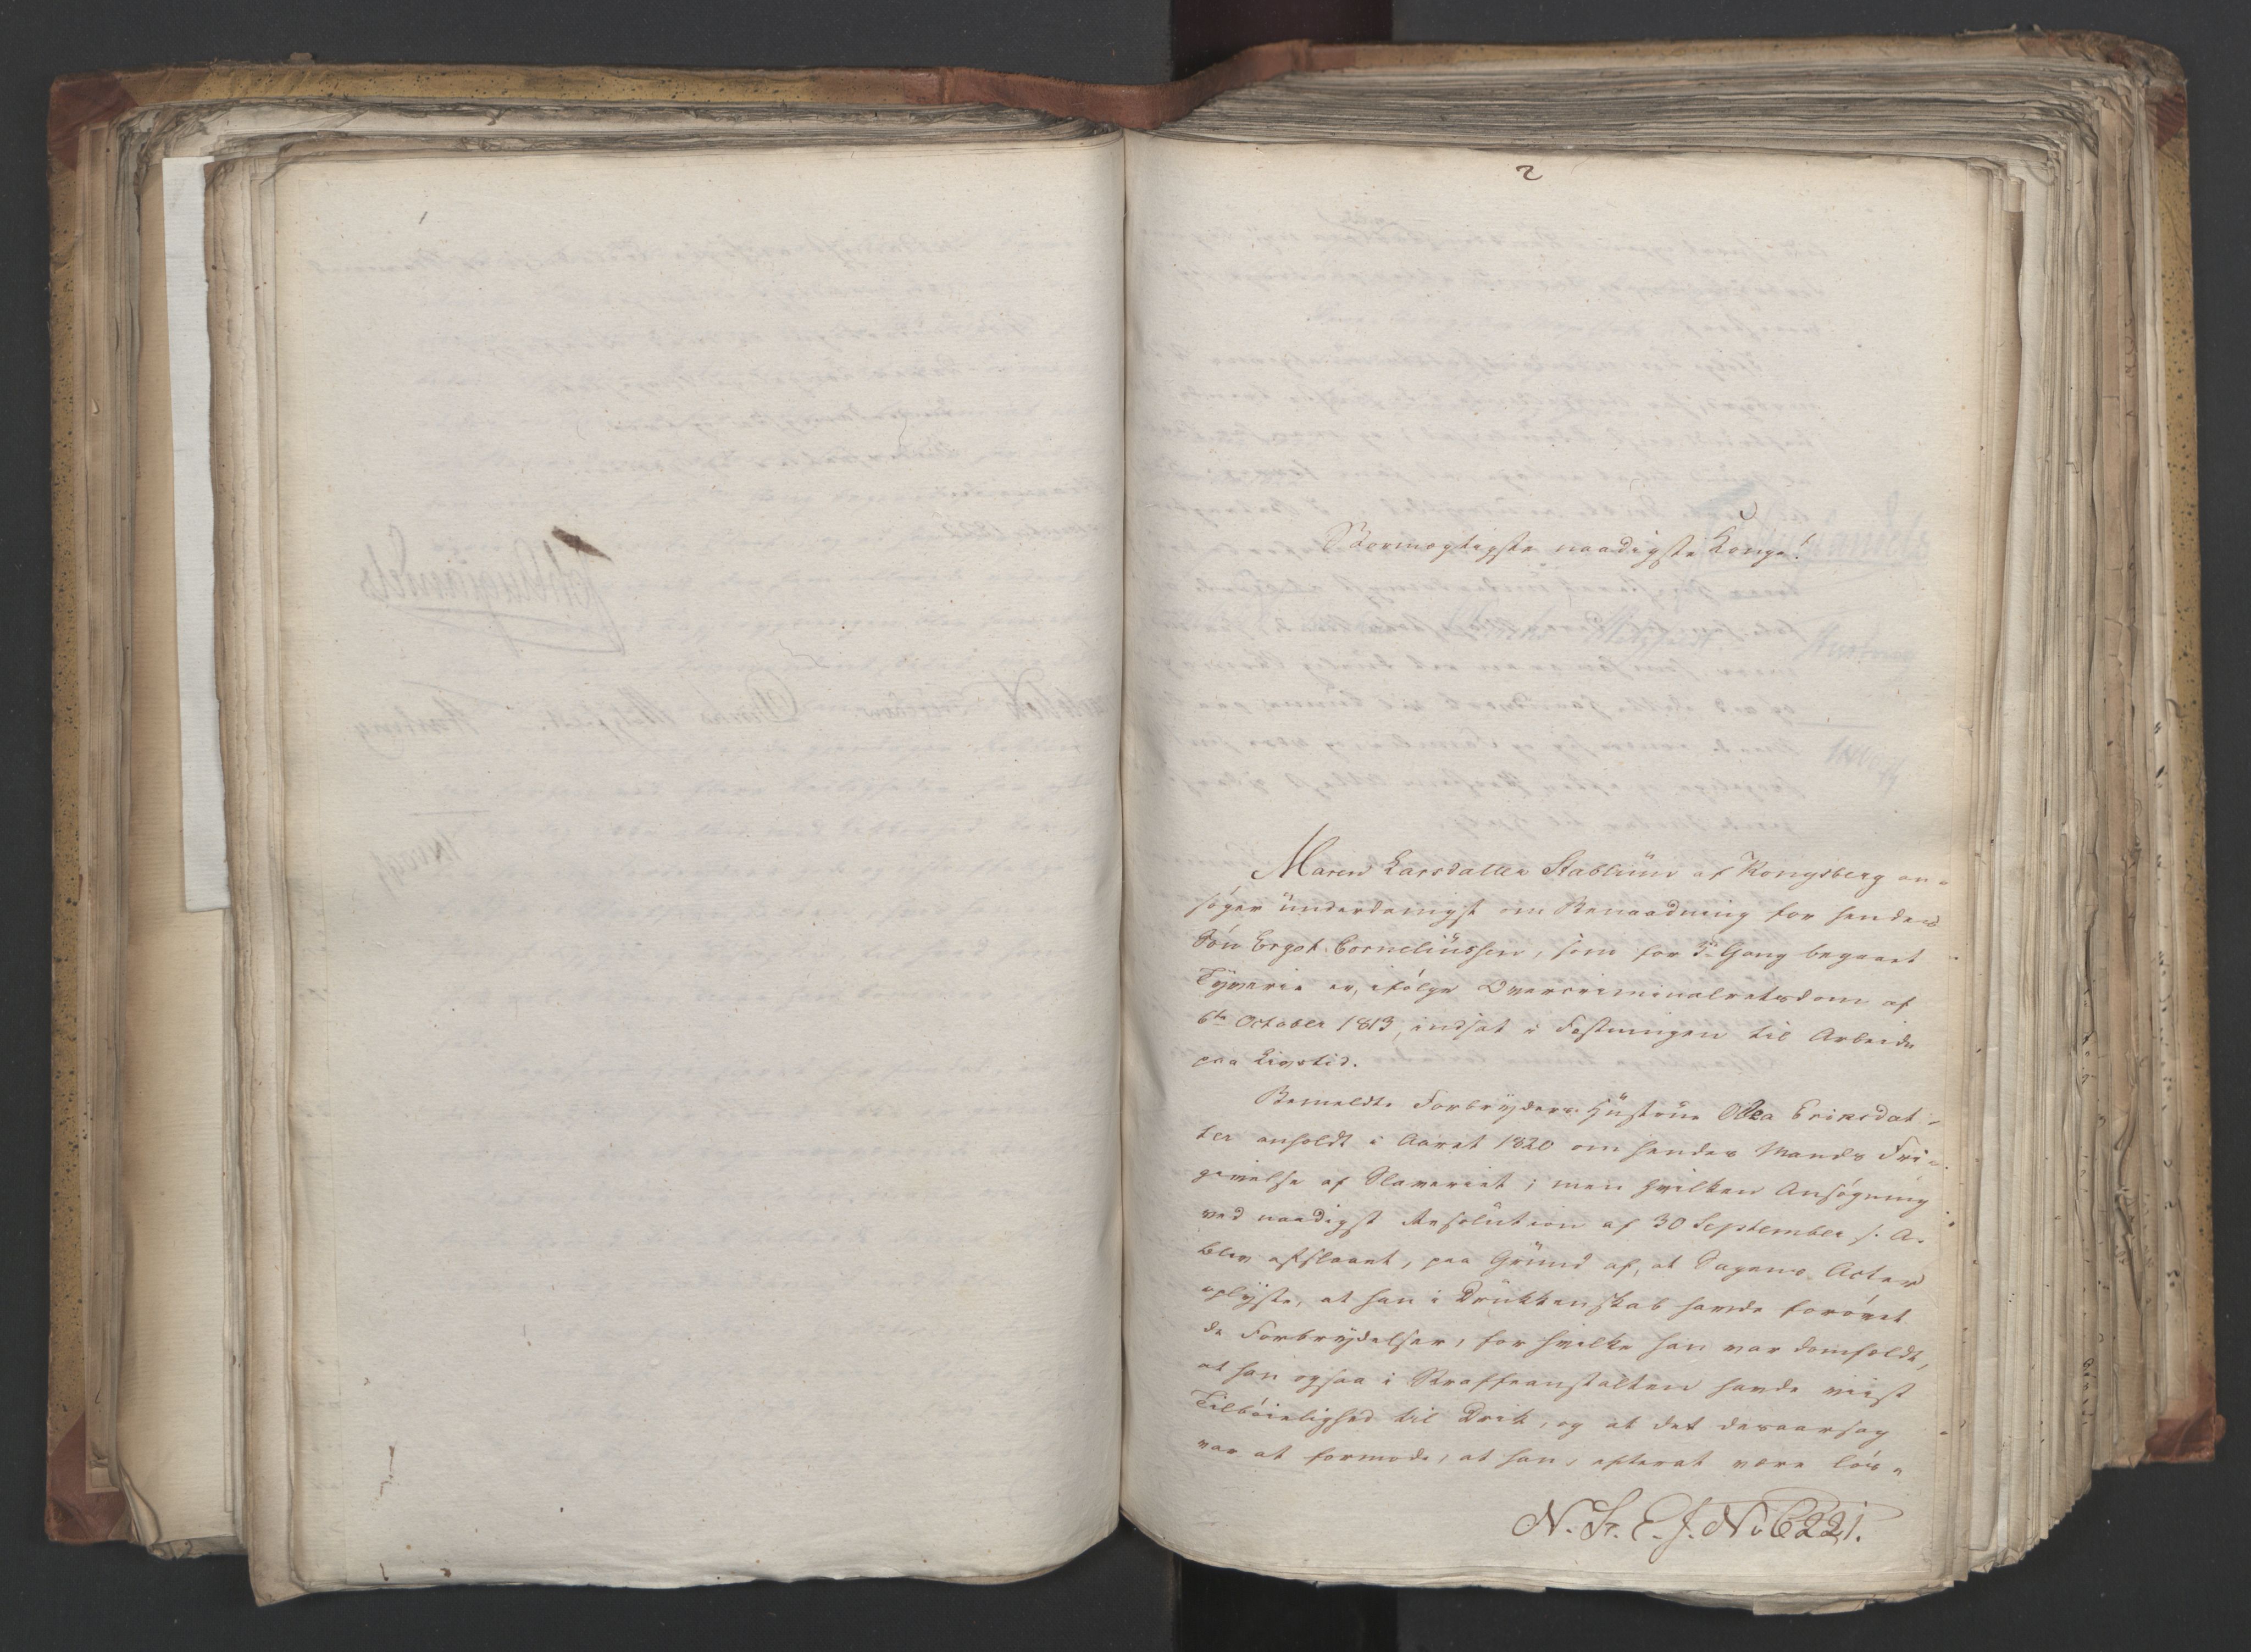 2
Stormægtigste naadigste Konge!
Maren Larsdatter Stablum af Kongsberg an-
søger underdanigst om Benaadning for hendes
Søn Corneliussen, som for 3die Gang begaaet
Tyverie er, ifølge Overcriminalretsdom af
6te October 1813, indsat i Fæstningen til Arbeide
paa Livstid.
Bemeldte Forbryders Hustrue Olea Eriksdat-
ter anholdt i Aaret 1820 om hendes Mands Fri-
givelse af Slaveriet; men hvilken Ansøgning
ved naadigst Resolution af 30 September s. A.
blev afslaaet, paa Grund af, at Sagens Acter
oplyste, at han i Drukkenskab havde forøvet
de Forbrydelser, for hvilke han var domfældt,
at han ogsaa i Straffeanstalten havde viist
Tilbøielighed til Drik, og at det desaarsag
var at formode, at han, efterat være løs-
N. Sr. E. J. No 6221.